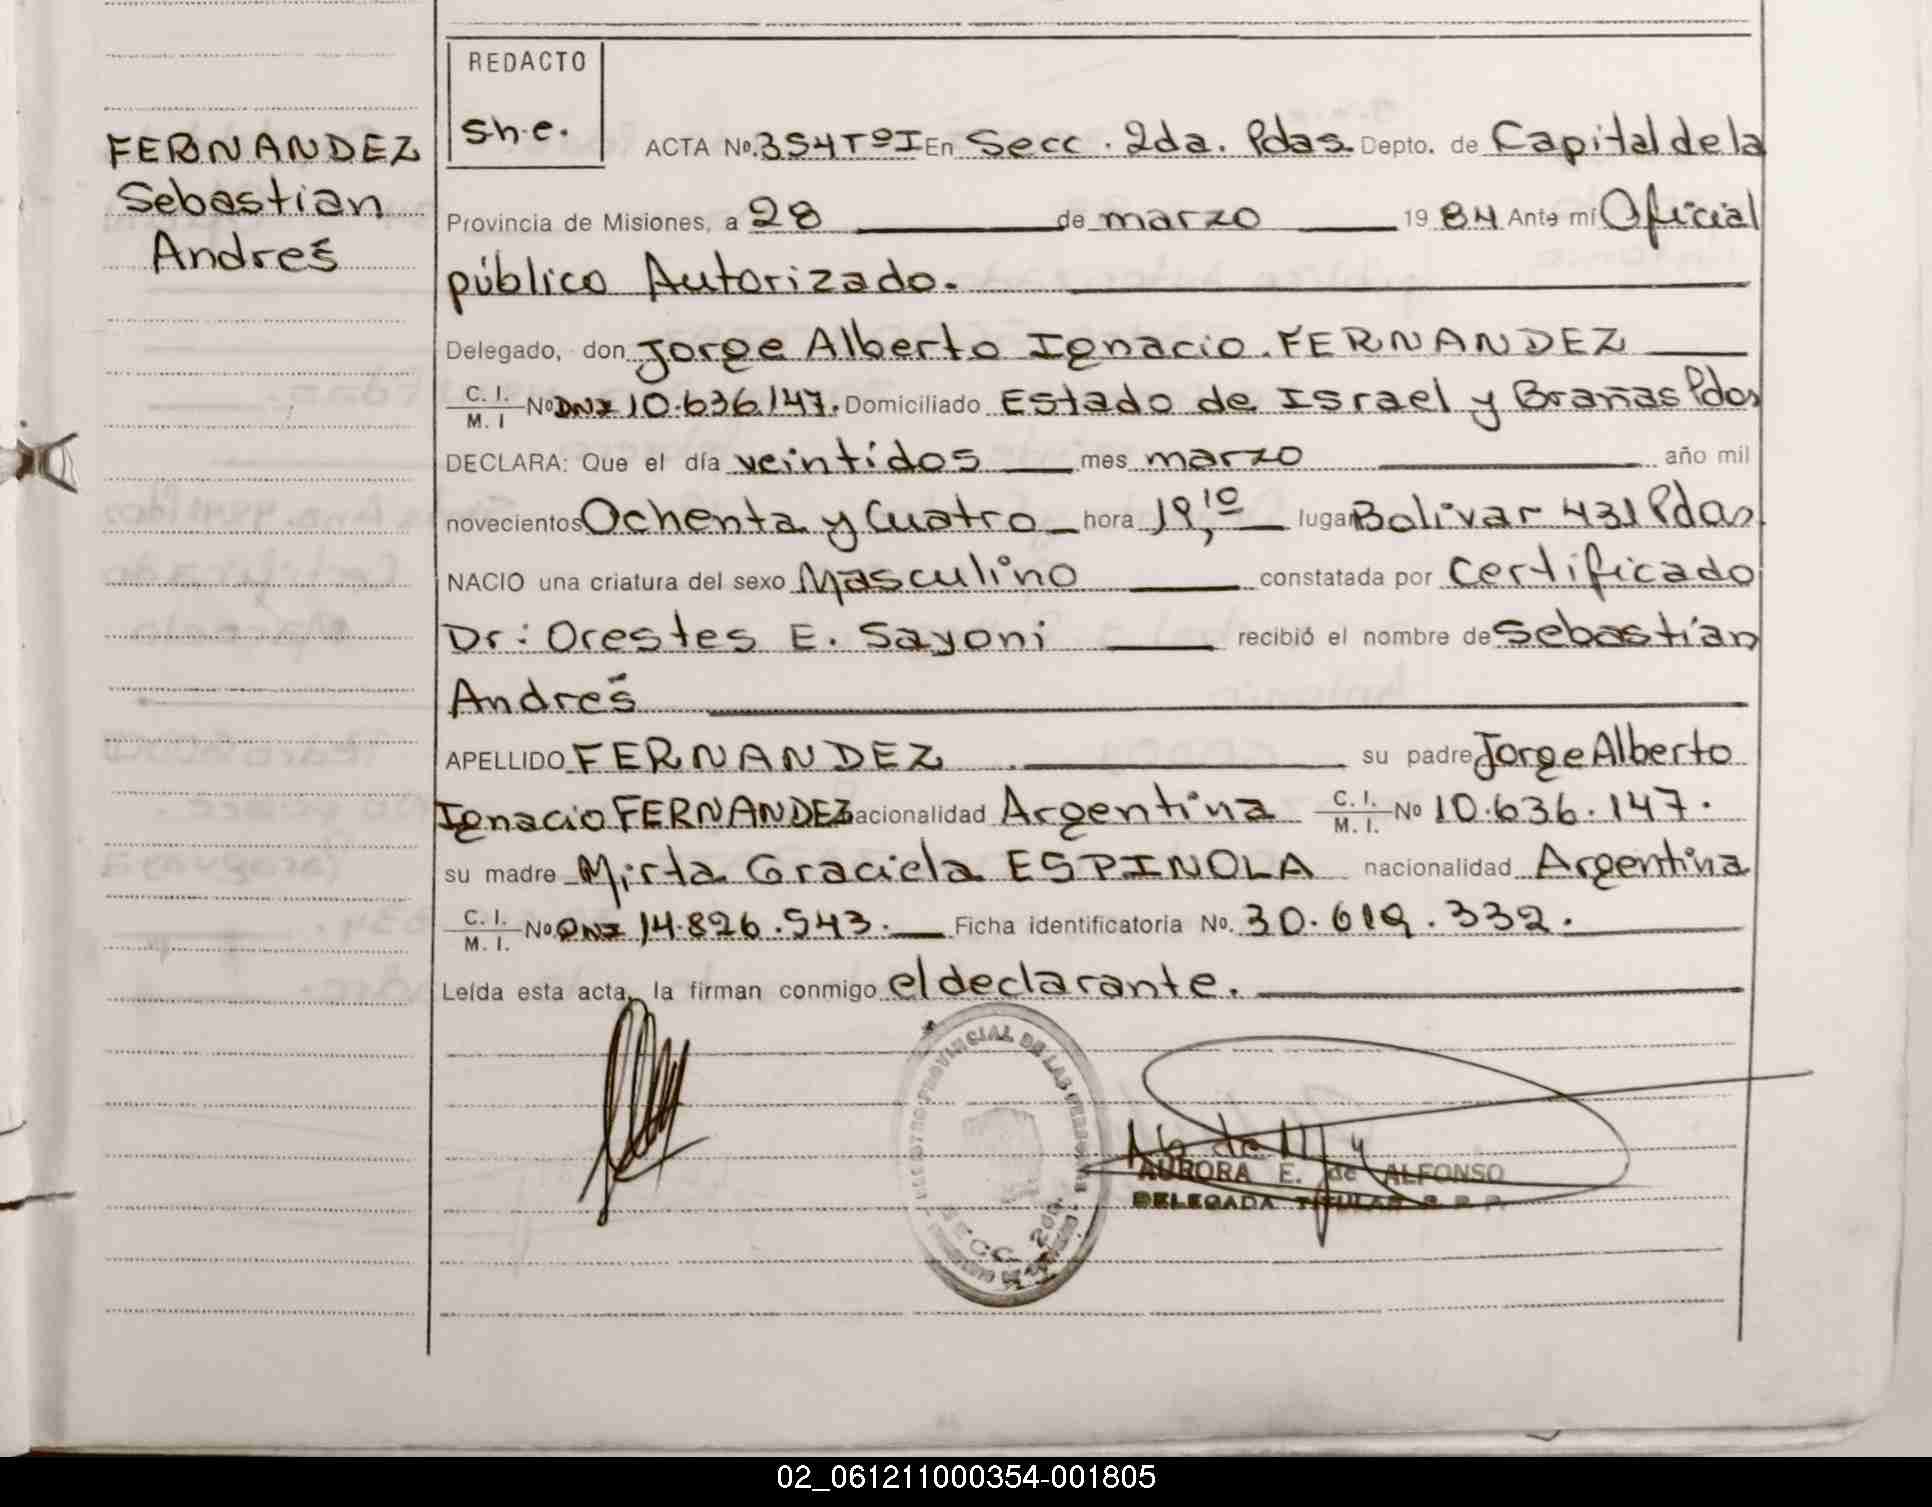 REDACTO
s.h.e.
FERNANDEZ
Sebastian
Andrés
ACTA Nº. 354 Tº I En Secc. 2da. Pdas. Depto. de Capital de la
Provincia de Misiones, a 28 de marzo 1984 Ante mí Oficial
público Autorizado.
Delegado, don Jorge Alberto Ignacio. FERNANDEZ
C. I. / M. I Nº DNI 10.636.147. Domiciliado Estado de Israel y Brañas Pdas
DECLARA: Que el día veintidos mes marzo año mil
novecientos Ochenta y Cuatro hora 19,10 lugar Bolivar 431 Pdas
NACIO una criatura del sexo Masculino constatada por Certificado
Dr: Orestes E. Sayoni recibió el nombre de Sebastián
Andrés
APELLIDO FERNANDEZ su padre Jorge Alberto
Ignacio FERNANDEZ nacionalidad Argentina C. I. / M. I. Nº 10.636.147.
su madre Mirta Graciela ESPINOLA nacionalidad Argentina
C. I. / M. I. Nº DNI 14.826.543. Ficha identificatoria No. 30.619.332.
Leída esta acta, la firman conmigo el declarante.
PROVINCIAL DE LAS PERSONAS
SECC. 2da.
AURORA E. de ALFONSO
DELEGADA TITULAR R. P. P.
02_061211000354-001805